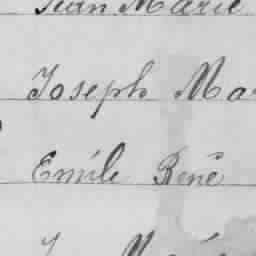 Jean Marie
Joseph Ma
Emile René